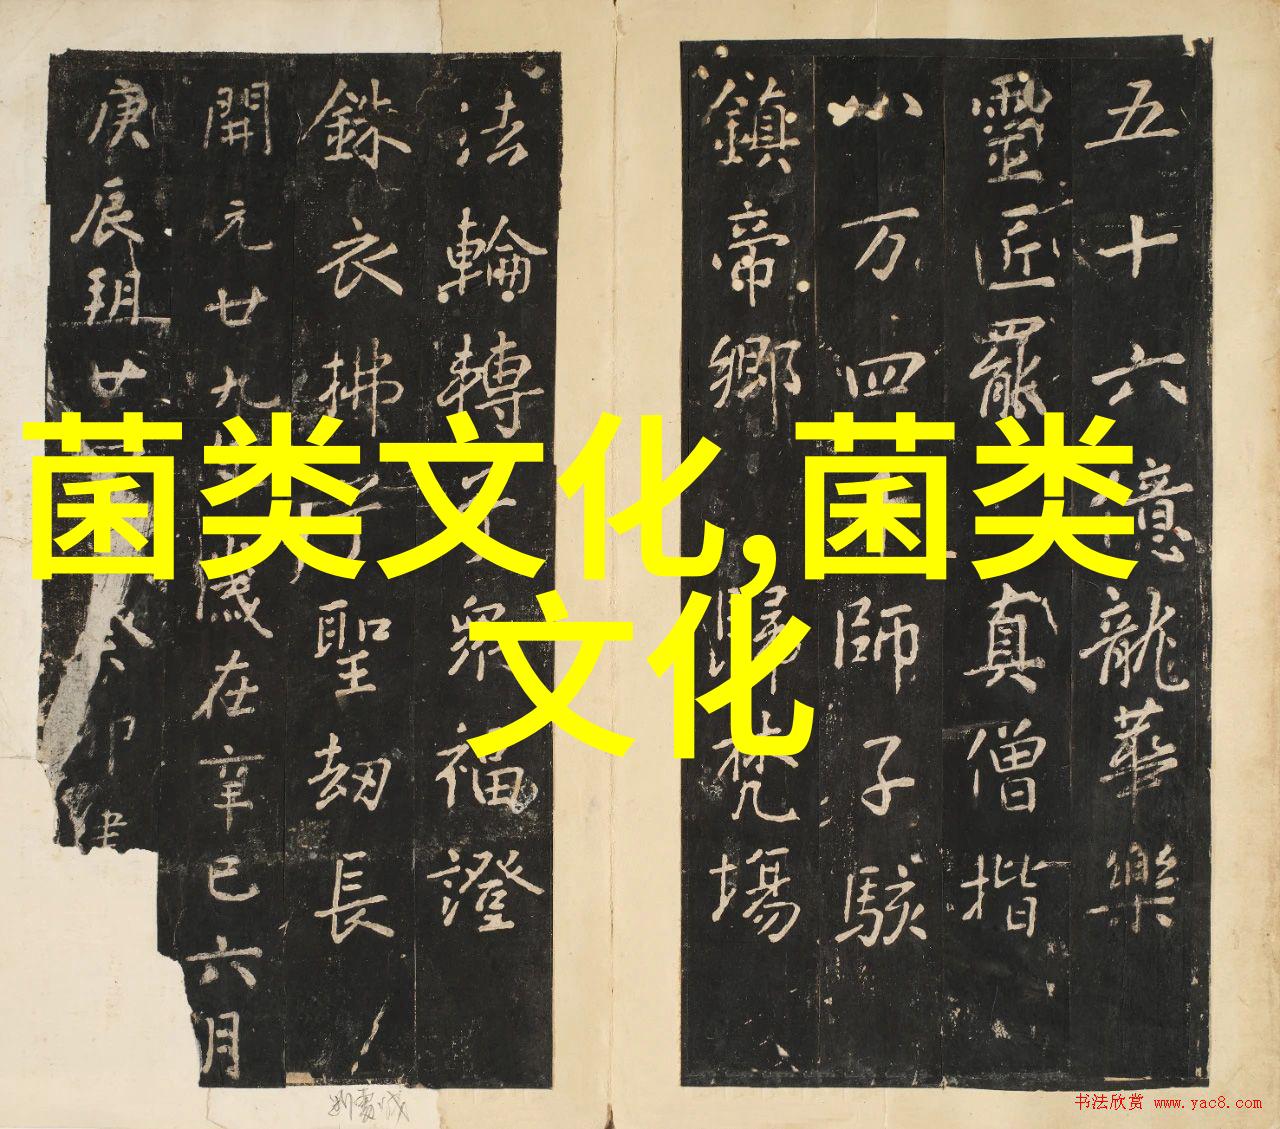 菌类文化,菌类
文化
五十六億龍華樂
靈匠罷真僧揩
八万四師子駭
鎮帝鄉歸梵場
法輪轉眾福證
銖衣拂聖劫長
開元廿九年歲在辛巳六月
庚辰朔廿癸卯建
书法欣赏 www.yac8.com